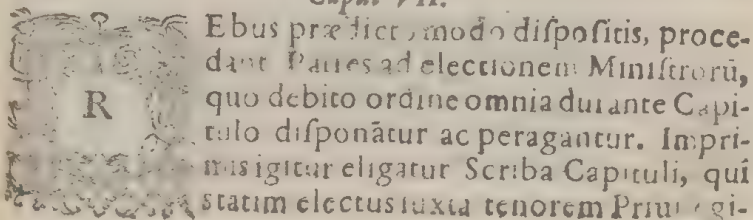 Caput VII.
REbus prædicto modo diſpoſitis, proce-
dant Patres ad electionem Miniſtrorũ,
quo debito ordine omnia durante Capi-
tulo diſponãtur ac peragantur. Impri-
mis igitur eligatur Scriba Capituli, qui
ſtatim electus iuxta tenorem Priuilegi-